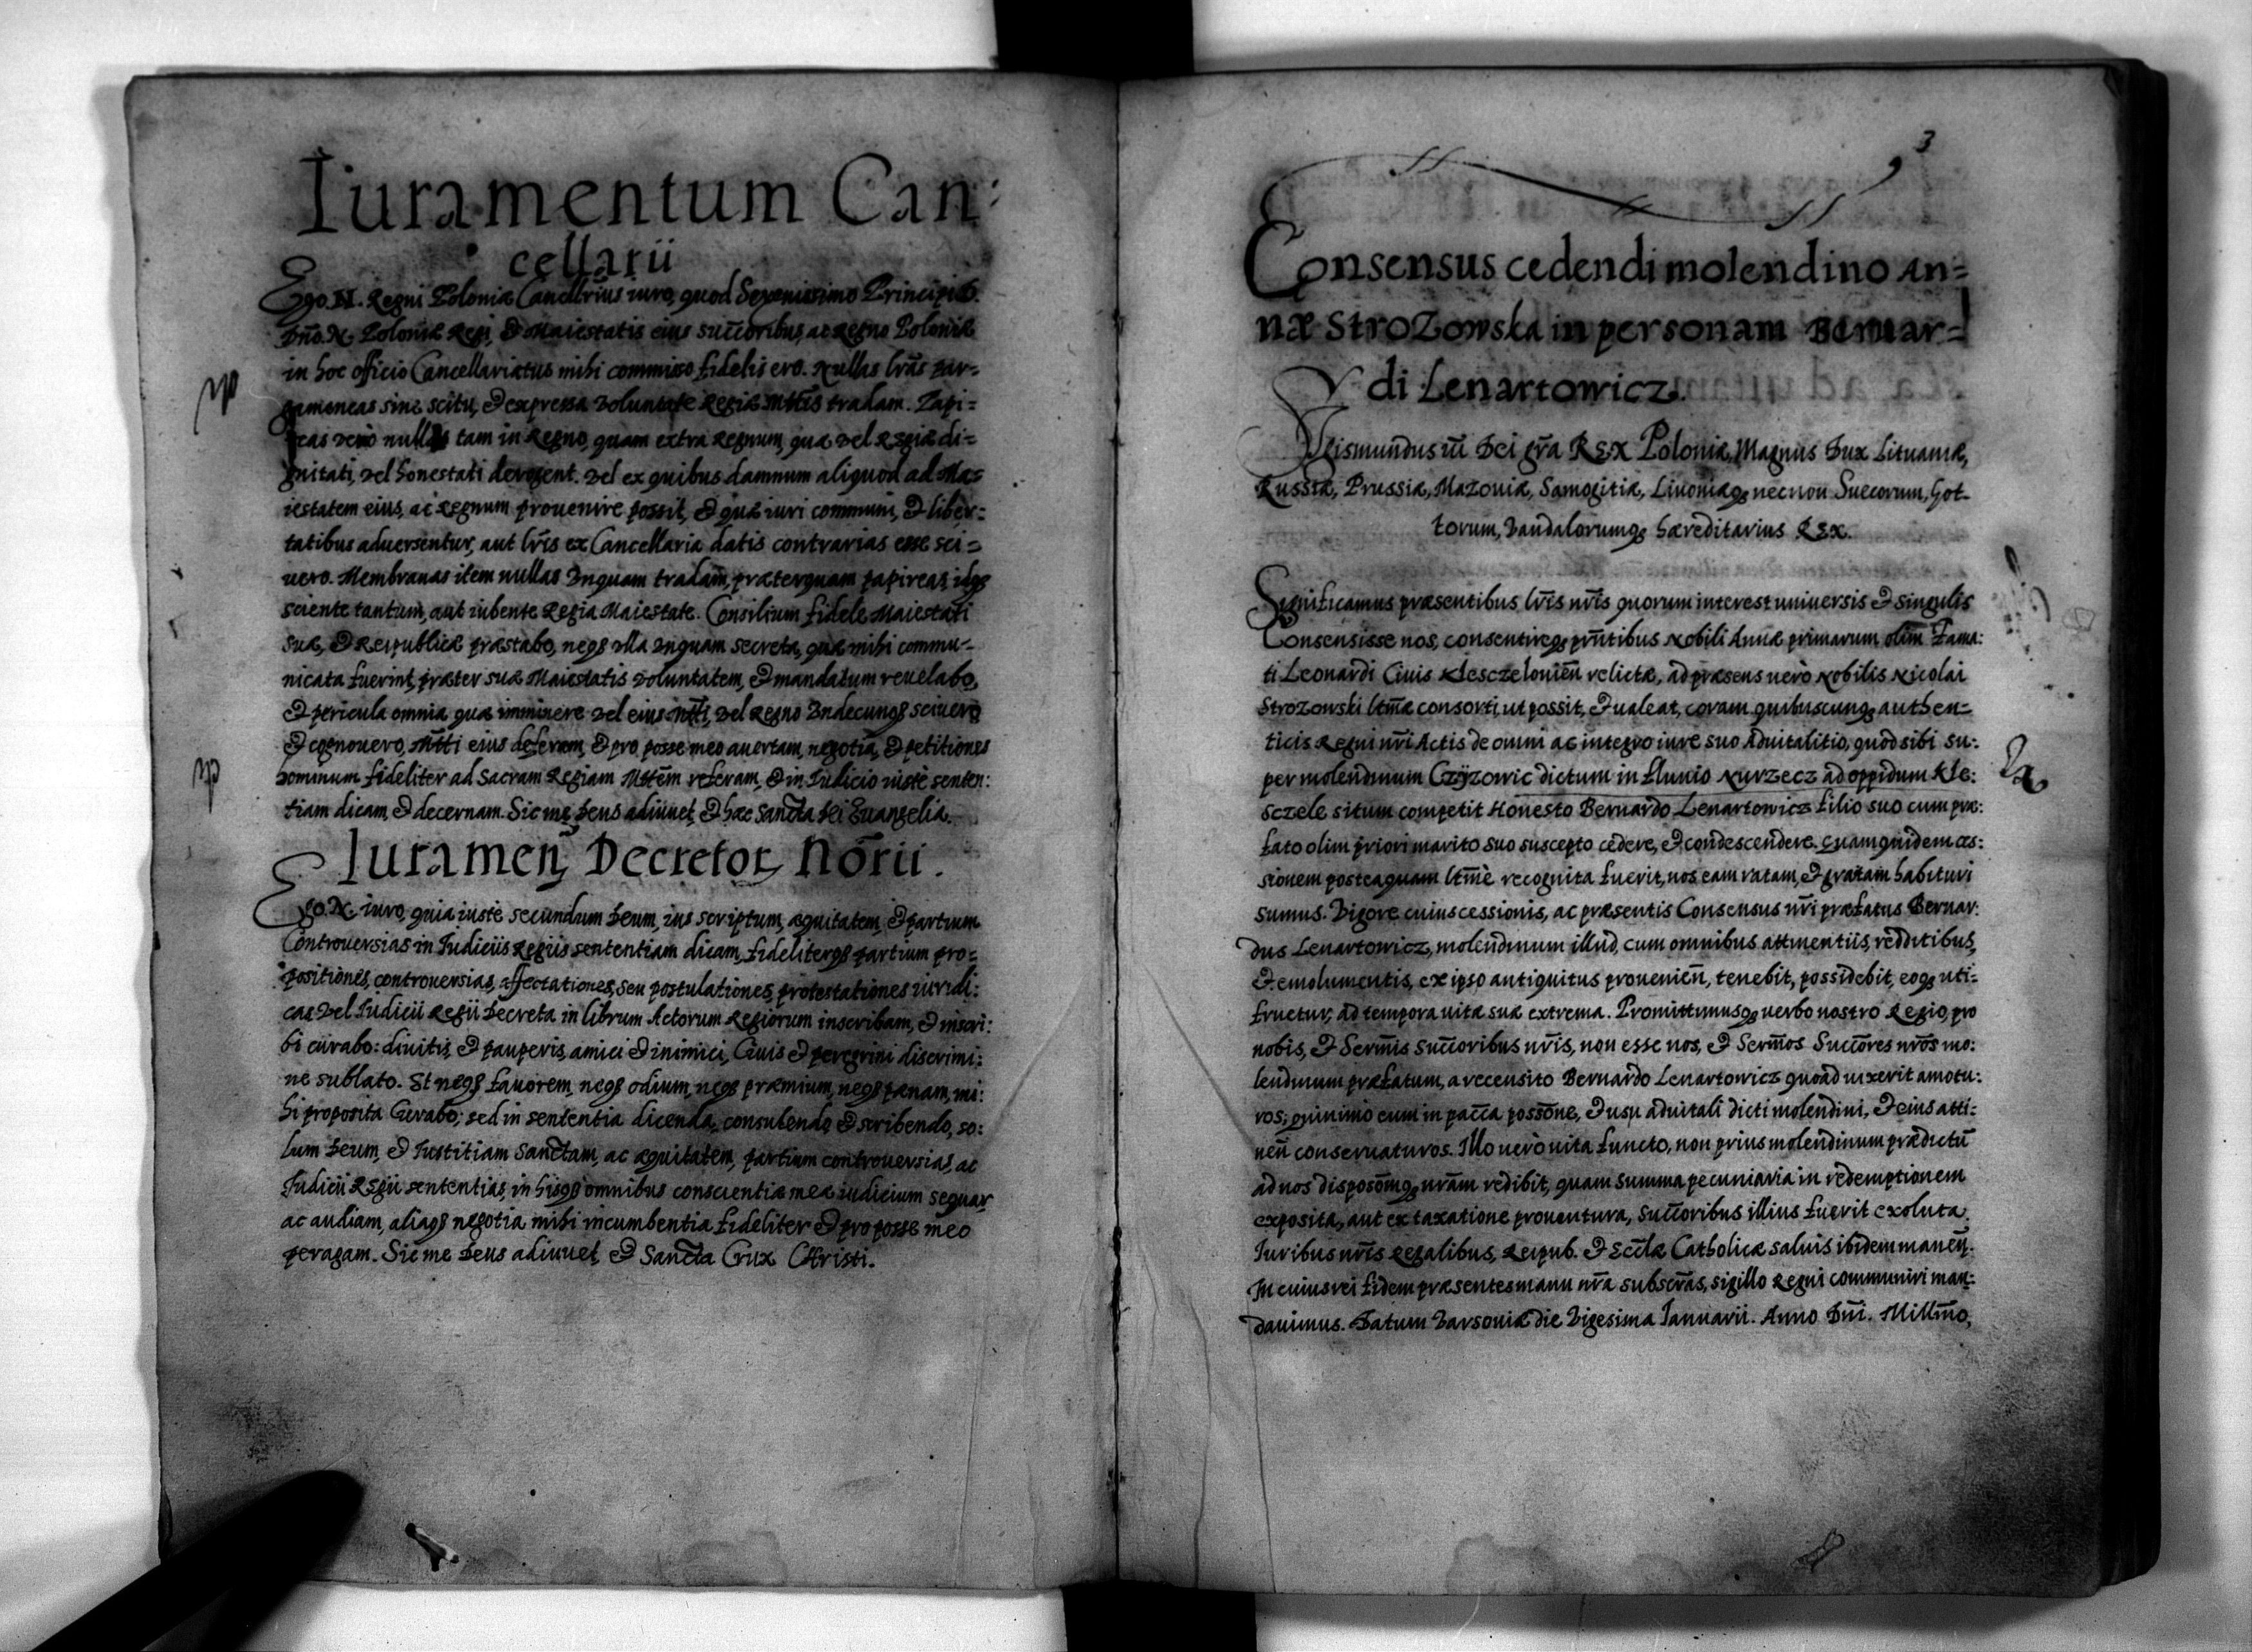 Iuramentum Can:
cellarii
Ego. N. Regni Poloniæ Cancellrius iuro, quod Serenissimo Principi D.
Dno. N. Poloniæ Regi, & Maiestatis eius succoribus, ac Regno Poloniæ
in hoc officio Cancellariatus mihi commisso fidelis ero. Nullas lras par=
gameneas sine scitu, & expressa voluntate Regiæ Mttis tradam. Papi=
reas vero nullas tam in Regno, quam extra Regnum, quæ vel Regiæ di=
gnitati, vel honestati derogent. vel ex quibus damnum aliquod ad Ma=
iestatem eius, ac Regnum prouenire possit, & quæ iuri communi, & liber=
tatibus aduersentur, aut lris ex Cancellaria datis contrarias esse sci=
uero. Membranas item nullas vnquam tradam, præterquam papireas, idq3
sciente tantum, aut iubente Regia Maiestate. Consilium fidele Maiestati
suæ, & Reipublicæ præstabo, neq3 vlla vnquam secreta, quæ mihi commu=
nicata fuerint, præter suæ Maiestatis voluntatem, & mandatum reuelabo,
& pericula omnia quæ imminere vel eius Mtti, vel Regno vndecunq3 sciuero
& cognouero, Mtti eius deferam, & pro posse meo auertam, negotia, & petitiones
hominum fideliter ad Sacram Regiam Mttem referam, & in Iudicio iustè senten:
tiam dicam, & decernam. Sic me Deus adiuuet, & hæc Sancta Dei Euangelia.
Iuramen Decretor Norii.
Ego. N. iuro, quia iustè secundum Deum, ius scriptum, æquitatem, & partium
Controuersias in Iudiciis Regiis sententiam dicam, fideliterq3 partium pro=
positiones, controuersias, affectationes, seu postulationes, protestationes iuridi:
cas vel Iudicii Regii Decreta in librum Actorum Regiorum inscribam, & inscri:
bi curabo: diuitis, & pauperis, amici & inimici, Ciuis & peregrini discrimi:
ne sublato. Et neq3 fauorem, neq3 odium, neq3 præmium, neq3 pænam, mi:
hi proposita Curabo; sed in sententia dicenda, consulendo & scribendo, so:
lum Deum, & Iustitiam Sanctam, ac æquitatem, partium controuersias, ac
Iudicii Regii sententias, in hisq3 omnibus conscientiæ meæ iudicium sequar
ac audiam, aliaq3 negotia mihi incumbentia fideliter & pro posse meo
peragam. Sic me Deus adiuuet, & Sancta Crux Christi.
3
Consensus cedendi molendino An=
næ Strozowska in personam Bernar=
di Lenartowicz.
Sigismundus iii Dei gra Rex Poloniæ, Magnus Dux Lituaniæ,
Russiæ, Prussiæ, Mazouiæ, Samogitiæ, Liuoniæq3 necnon Suecorum, Got-
torum, Vandalorumq3 hæreditarius Rex.
Significamus præsentibus lris nris quorum interest uniuersis & singulis
Consensisse nos, consentireq3 pntibus Nobili Annæ primarum olim Fama:
ti Leonardi Ciuis Klesczelouien relictæ, ad præsens uerò Nobilis Nicolai
Strozowski ltmæ consorti, ut possit, & ualeat, coram quibuscunq3 authen=
ticis Regni nri Actis de omni ac integro iure suo Aduitalitio, quod sibi su:
per molendinum Czÿzowic dictum in fluuio Nurzecz ad oppidum Kle:
sczele situm competit Honesto Bernardo Lenartowicz filio suo cum præ:
fato olim priori marito suo suscepto cedere, & condescendere. Quam quidem ces:
sionem posteaquam ltmè recognita fuerit, nos eam ratam, & gratam habituri
sumus. Vigore cuius cessionis, ac præsentis Consensus nri præfatus Bernar:
dus Lenartowicz, molendinum illud, cum omnibus attinentiis, redditibus,
& emolumentis, ex ipso antiquitus prouenien, tenebit, possidebit, eoq3 uti=
fruetur, ad tempora uitæ suæ extrema. Promittimusq3 uerbo nostro Regio, pro
nobis, & Sermis Succoribus nris, non esse nos, & Sermos Succores nros mo:
lendinum præfatum, a recensito Bernardo Lenartowicz quoad uixerit amotu:
ros; quinimo eum in pacca possone, & usu aduitali dicti molendini, & eius atti:
nen conseruaturos. Illo uerò uita functo, non prius molendinum prædictu
ad nos disposonq3 nram redibit, quam summa pecuniaria in redemptionem
exposita, aut ex taxatione prouentura, succoribus illius fuerit exoluta.
Iuribus nris Regalibus, Reipub. & Ecclæ Catholicæ saluis ibidem manen.
In cuius rei fidem præsentes manu nra subscras, sigillo Regni communiri man=
dauimus. Datum Varsouiæ die Vigesima Ianuarii. Anno Dni. Millmo,